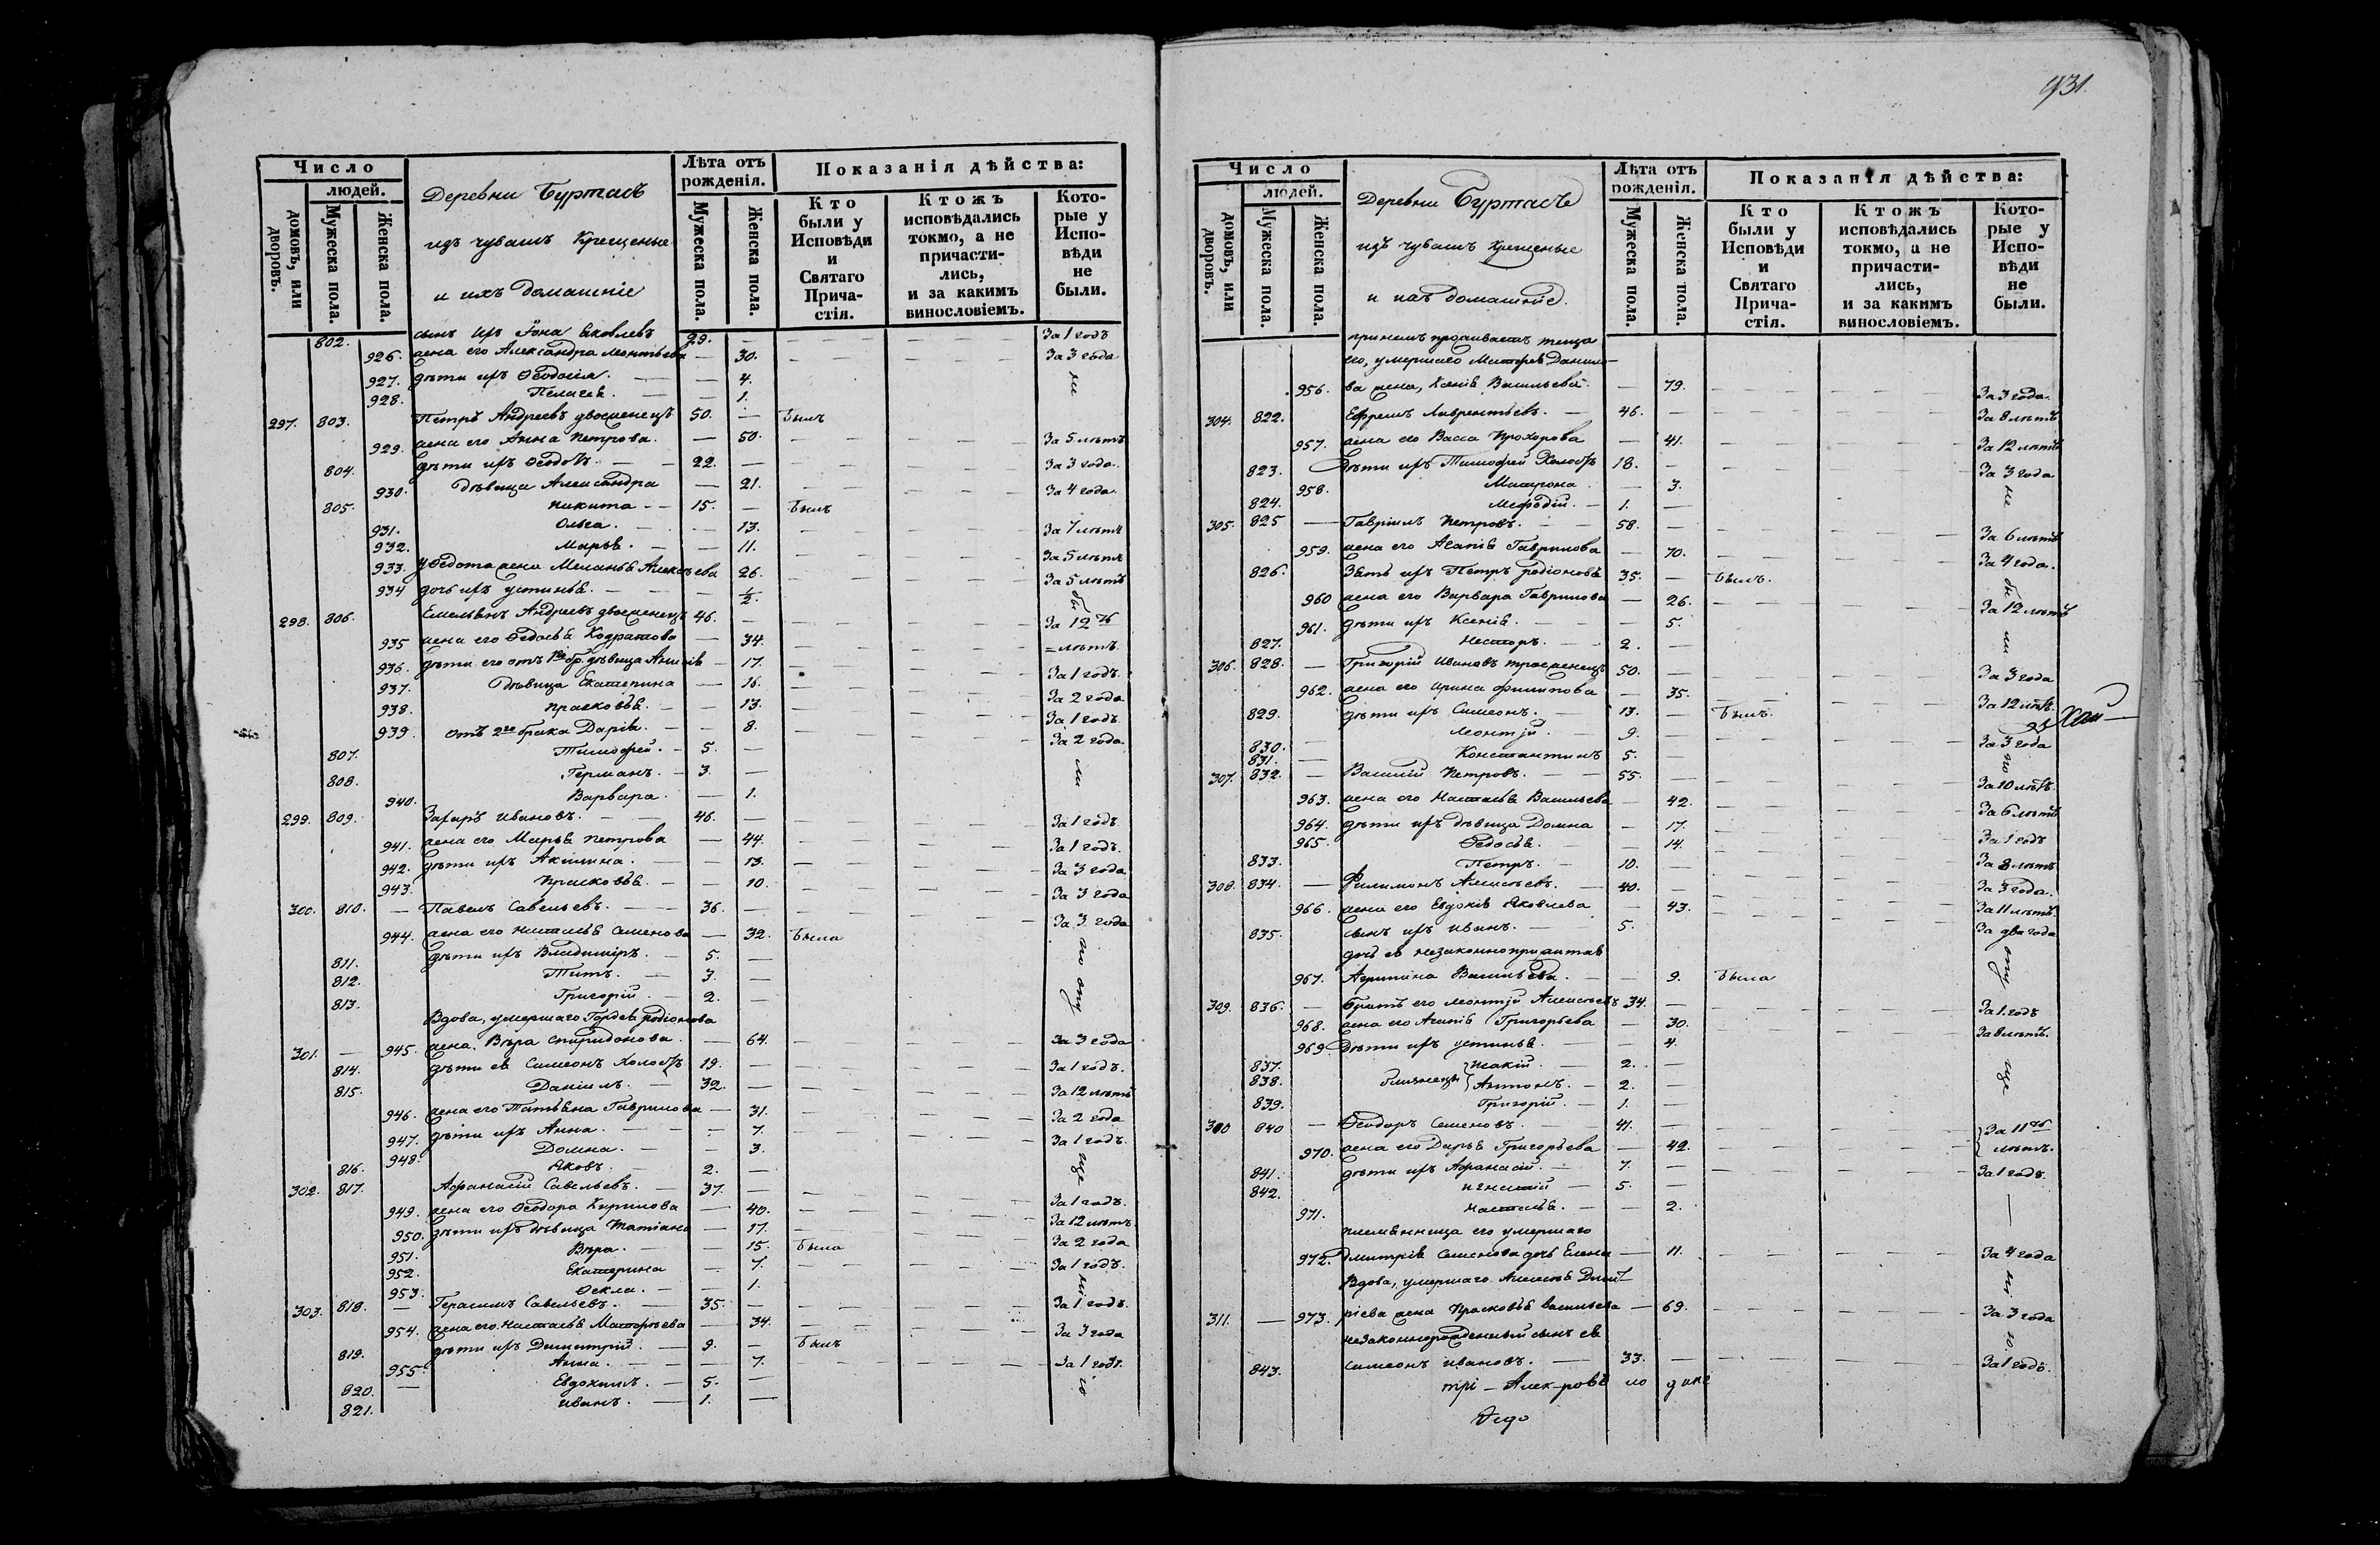 931.
Число
людей.
домовъ, или дворовъ.
Мужеска пола.
Женска пола.
Деревни Буртасъ
изъ чувашъ Крещеные
и ихъ домашніе
Лѣта отъ рожденія.
Мужеска пола.
Женска пола.
Показанія дѣйства:
Кто были у Исповѣди и Святаго Прича- стія.
Ктожъ исповѣдались токмо, а не причасти- лись, и за какимъ винословіемъ.
Кото- рые у Испо- вѣди не были.
802. сынъ ихъ Іона Яковлевъ 29. — За 1 годъ
926. жена его Александра Леонтьева — 30. За 3 года
927. дѣти ихъ Ѳеодосія. — 4.
928. Пелагея. — 1.
297. 803. Петръ Андреевъ двоеженецъ 50. — былъ
929. жена его Анна Петрова. — 50. За 5 лѣтъ
804. дѣти ихъ Ѳеодотъ. 22. — За 3 года.
930. дѣвица Александра — 21. За 4 года.
805. Никита — 15. — былъ
931. Ольга. — 13. За 7 лѣтъ
932. Марья. — 11. За 5 лѣтъ
933. у Ѳедота жена Меланья Алексѣева 26. За 5 лѣтъ
934 дочь ихъ Устинья. — 1/2.
298. 806. Емельянъ Андреевъ двоеженецъ 46. — За 12ть
935 жена его Ѳедосья Кодратова — 34. = лѣтъ.
936. дѣти его отъ 1го бр. дѣвица Анисія — 17. За 1 годъ.
937. дѣвица Екатерина — 16. За 2 года
938. Прасковья. — 13. За 1 годъ.
939. отъ 2го брака Дарія. — 8. За 2 года.
807. Тимофей. — 5. —
808. Германъ. — 3. —
940. Варвара. — 1.
299. 809. Захаръ Ивановъ. 46. — За 1 годъ.
941. жена его Марья Петрова — 44. За 1 годъ.
942. дѣти ихъ Акилина. — 13. За 3 года
943. Прасковья. — 10. За 3 года
300. 810. — Павелъ Савельевъ. 36. — За 3 года
944. жена его Настасья Семенова — 32. была
811. дѣти ихъ Владимиръ. 5. —
812. Титъ. 3. —
813. Григорій. 2. —
Вдова, умершаго Гордея Родіонова
301. — 945. жена. Вѣра Спиридонова. — 64. За 3 года
814. дѣти ея Симеонъ Холостъ 19. За 1 годъ.
815. Даніилъ. 32. — За 12 лѣтъ
946. жена его Татьяна Гаврилова — 31. За 2 года
947. дѣти ихъ Анна. — 7. За 1 годъ.
948. Домна. — 3.
816. Яковъ. 2. —
302. 817. Афанасій Савельевъ. 37. — За 1 годъ.
949. жена его Ѳеодора Кирилова — 40. За 12 лѣтъ.
950. дѣти ихъ дѣвица Татіана — 17. За 2 года
951. Вѣра. — 15. была
952. Екатерина — 7. За 1 годъ.
953. Ѳекла. — 1.
303. 818. — Герасимъ Савельевъ. 35. — За 1 годъ.
954. жена его. Настасья Матфѣева — 34. За 3 года
819. дѣти ихъ Димитрій. 9. — былъ
955. Анна. — 7. За 1 годъ.
820. Евдокимъ. — 5. —
821. Иванъ. — 1. —
Число
людей.
домовъ, или дворовъ.
Мужеска пола.
Женска пола.
Деревни Буртасъ
изъ чувашъ крещеные
и ихъ домашніе.
Лѣта отъ рожденія.
Мужеска пола.
Женска пола.
Показанія дѣйства:
Кто были у Исповѣди и Святаго Прича- стія.
Ктожъ исповѣдались токмо, а не причасти- лись, и за какимъ винословіемъ.
Кото- рые у Испо- вѣди не были.
при немъ проживаетъ теща
его, умершаго Матфея Данило-
956. ва жена, Ксенія Васильева. — 79. За 3 года.
304. 822. Ефремъ Лаврентьевъ. — 46. — За 8 лѣтъ
957. жена его Васса Прохорова — 41. За 12 лѣтъ
823. дѣти ихъ Тимофей Холостъ 18. — За 3 года
958. Матрона — 3.
824. Мефодій. — 1. —
305. 825 — Гавріилъ Петровъ. 58. — За 6 лѣтъ
959. жена его Агапія Гаврилова — 70. За 4 года.
826. Зять ихъ Петръ Родіоновъ 35. — былъ.
960 жена его Варвара Гаврилова — 26. За 12 лѣтъ
961. дѣти ихъ Ксенія. — 5.
827. Несторъ. — 2. —
306. 828. — Григорій Ивановъ троеженецъ 50. За 3 года
962. жена его Ирина Филипова — 35. За 12 лѣтъ.
829. дѣти ихъ Симеонъ. — 13. — былъ.
830. Леонтій. — 9. За 3 года
831. Константинъ 5. —
307. 832. — Василій Петровъ. 55. — За 10 лѣтъ.
963. жена его Настасья Васильева — 42. За 6 лѣтъ
964. дѣти ихъ дѣвица Домна — 17. За 1 годъ
965. Ѳедосья. — 14. За 8 лѣтъ
833. Петръ. — 10. — За 3 года.
308. 834. — Филимонъ Алексѣевъ. — 40. — За 11 лѣтъ.
966. жена его Евдокія Яковлева — 43. За два года
835. сынъ ихъ Иванъ. — 5.
дочь ея незаконноприжитая
967. Агрипина Васильева. — 9. была
309. 836. — Братъ его Леонтій Алексѣевъ 34. — За 1 годъ
968. жена его Агапія Григорьева — 30. За 8 лѣтъ.
969 Дѣти ихъ Устинья. — 4.
837. Исакій. — 2. —
838. близнецы Антонъ. — 2. —
839. Григорій. — 1. —
310 840 — Ѳеодоръ Семеновъ. 41. — За 11ть
970. жена его Дарья Григорьева — 42. лѣтъ.
841. дѣти ихъ Афанасій. — 7. — За 1 годъ.
842. Игнатій — 5. —
971. Настасья. — 2.
племянница его умершаго
972. Дмитрія Семенова дочь Елена — 11. За 4 года
Вдова, умершаго Алексѣя Дмит-
311. — 973. ріева жена Прасковья Васильева — 69. За 3 года
незаконнорожденный сынъ ея
843. Симеонъ Ивановъ. — 33. — За 1 годъ.